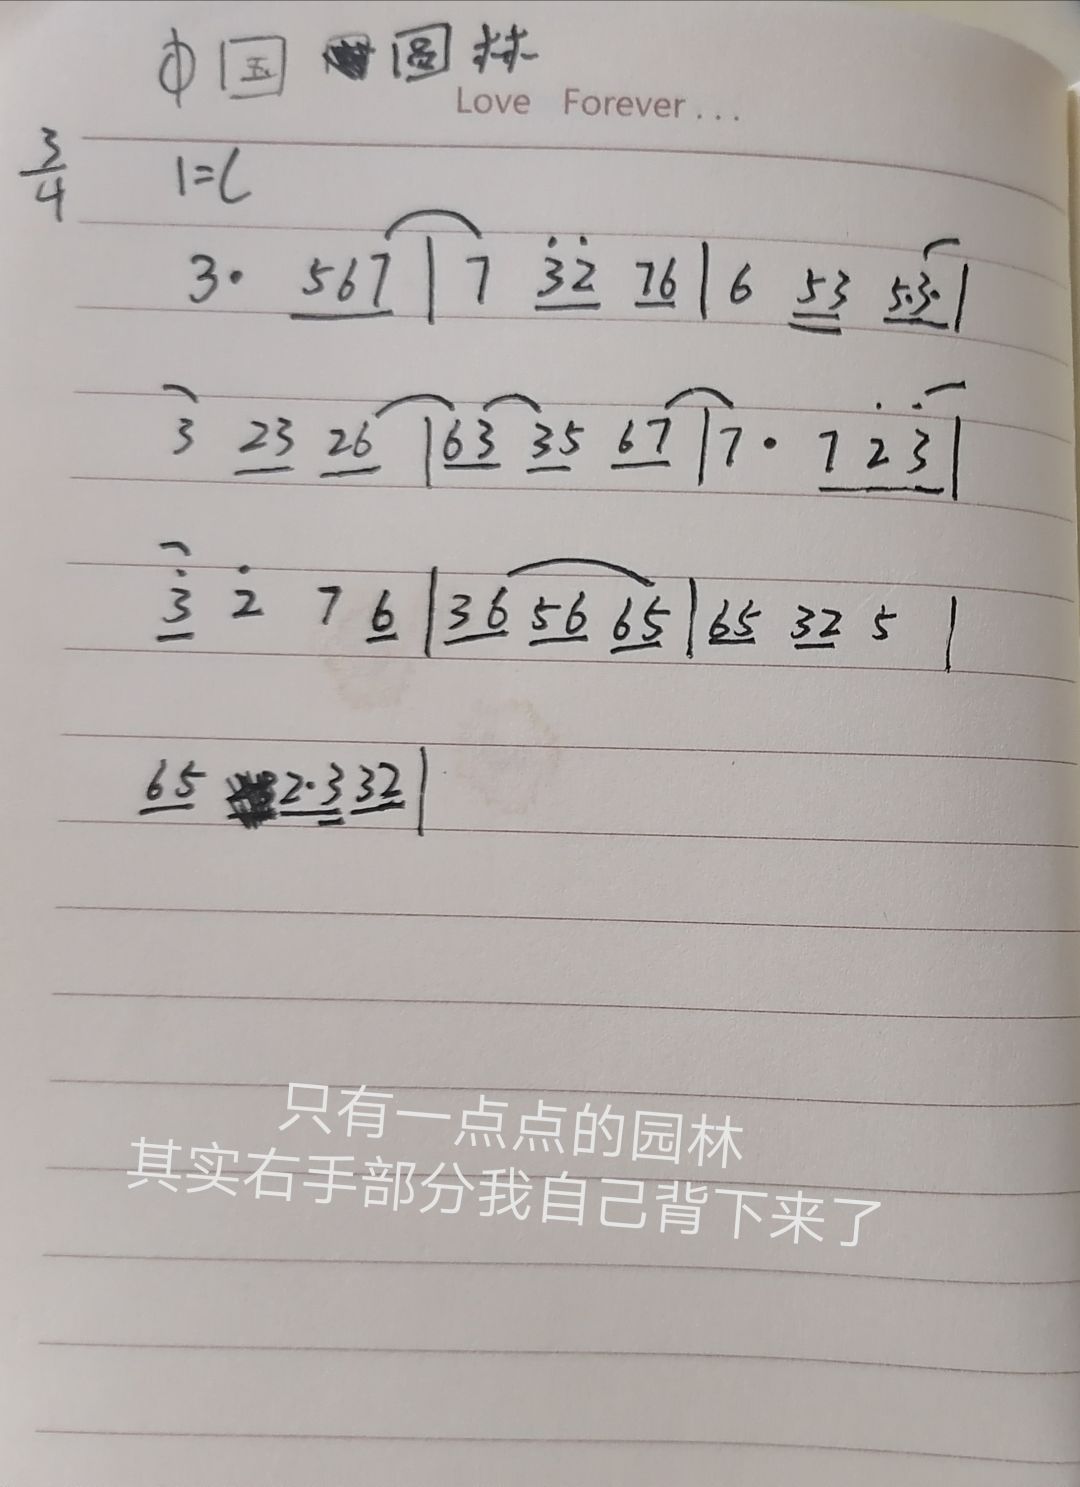 中国园林
Love Forever...
3/4 1=C
3· 567 | 7 3̇2̇ 76 | 6 53 5·3· |
3 23 26 | 63 35 67 | 7· 7 2̇ 3̇ |
3̇ 2̇ 7 6 | 36 56 65 | 65 32 5 |
65 2·3 32 |
只有一点点的园林
其实右手部分我自己背下来了